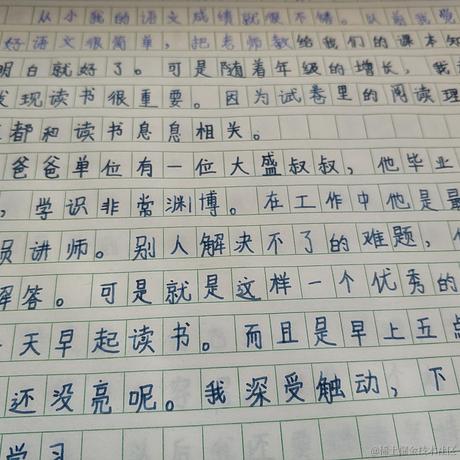 从小我的语文成绩就很不错。以前我觉
好语文很简单，把老师教给我们的课本知
明白就好了。可是随着年级的增长，我
发现读书很重要。因为试卷里的阅读理
都和读书息息相关。
爸爸单位有一位大盛叔叔，他毕业
，学识非常渊博。在工作中他是最
员讲师。别人解决不了的难题，
解答。可是就是这样一个优秀的
天早起读书。而且是早上五点
还没亮呢。我深受触动，下
学习
@稀土掘金技术社区